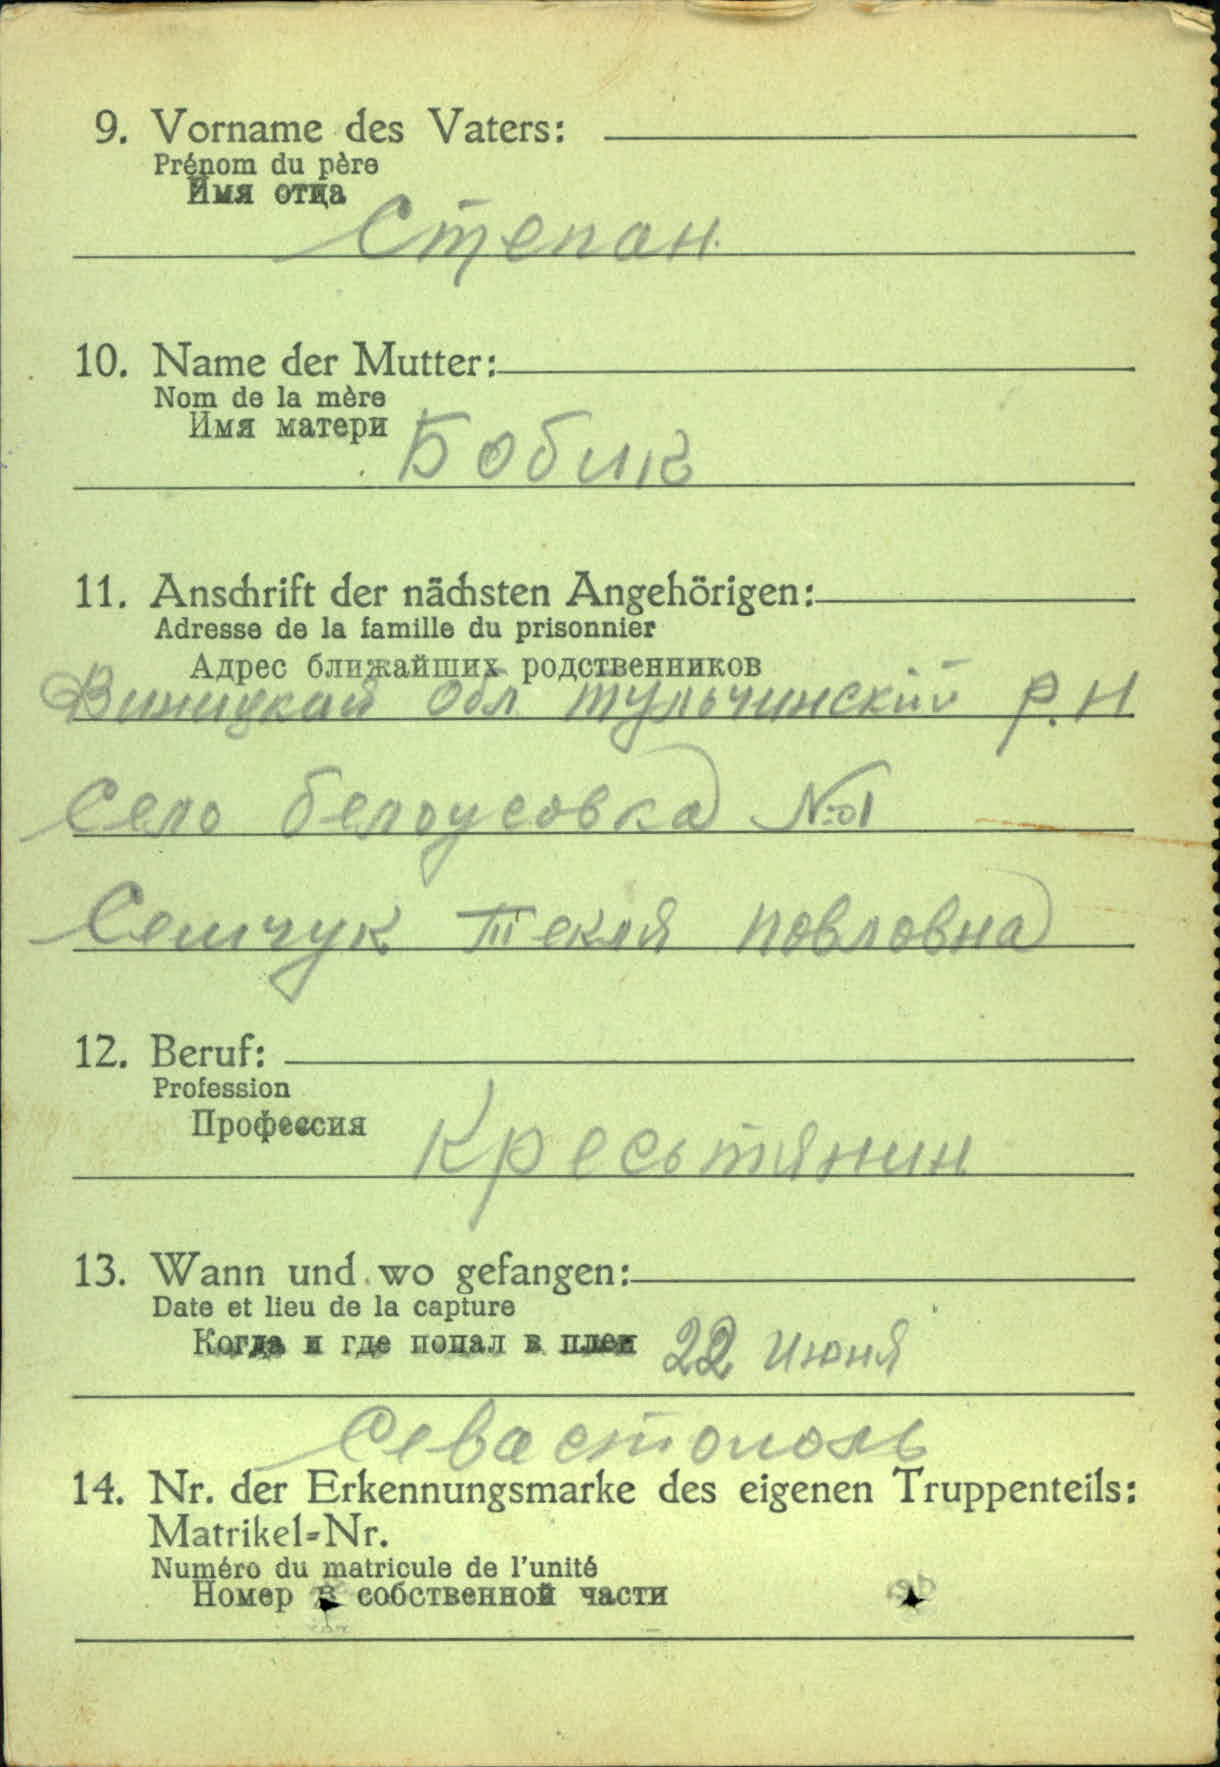 9. Vorname des Vaters:
Prénom du père
Имя отца
Степан
10. Name der Mutter:
Nom de la mère
Имя матери
Бобик
11. Anschrift der nächsten Angehörigen:
Adresse de la famille du prisonnier
Адрес ближайших родственников
Виницкай обл тульчинский р.н
село белоусовка №1
Семчук Текля повловна
12. Beruf:
Profession
Профессия
Кресьтянин
13. Wann und wo gefangen:
Date et lieu de la capture
Когда и где попал в плен 22 июня
Севастополь
14. Nr. der Erkennungsmarke des eigenen Truppenteils:
Matrikel=Nr.
Numéro du matricule de l'unité
Номер в собственной части